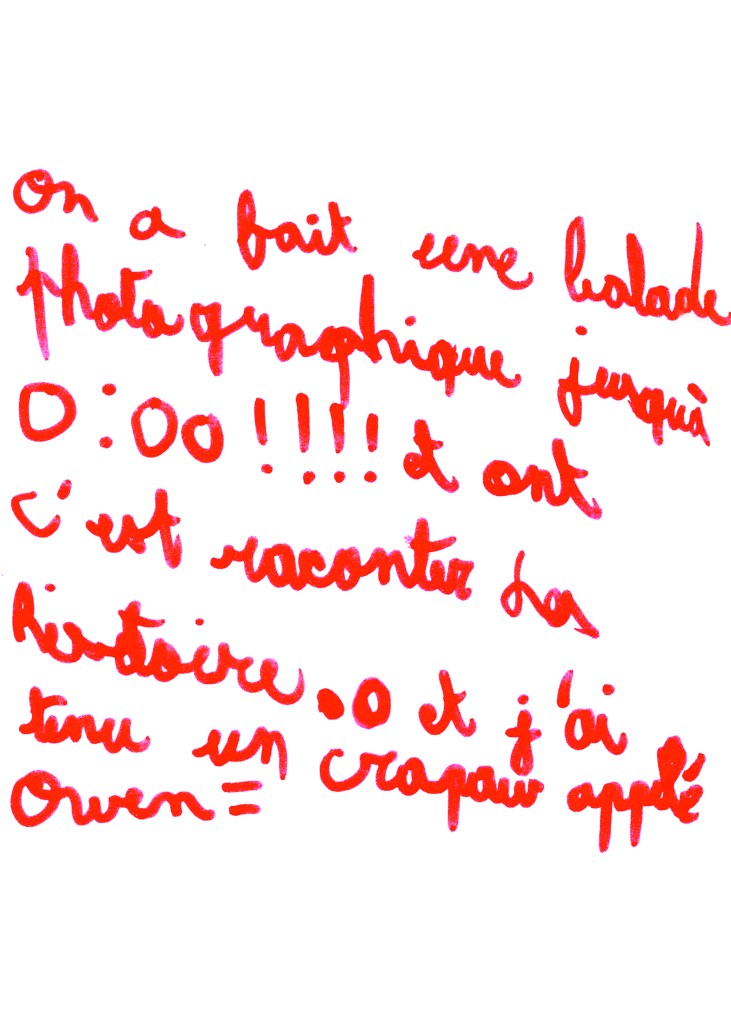 on a fait une balade
photographique jusquà
0:00 !!!! et ont
c'est raconter des
histoire .O et j'ai
tenu un crapaud applé
Owen =